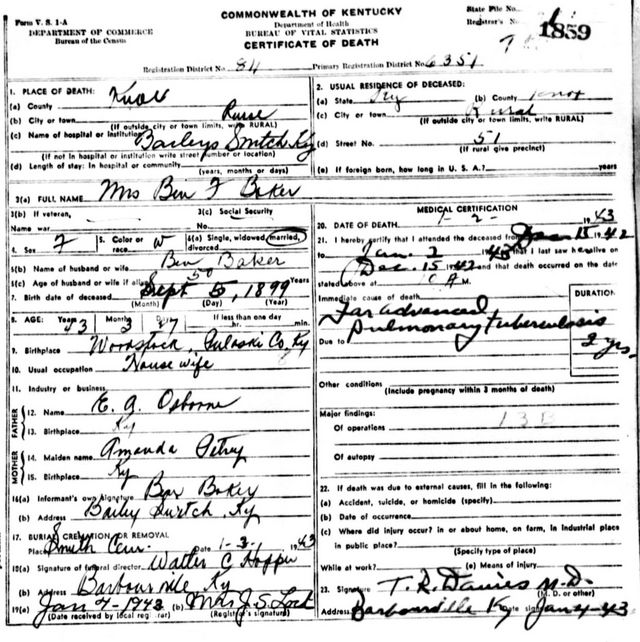 Form V. S. 1-A
DEPARTMENT OF COMMERCE
Bureau of the Census
COMMONWEALTH OF KENTUCKY
Department of Health
BUREAU OF VITAL STATISTICS
CERTIFICATE OF DEATH
State File No.
Registrar's No.
1859
Registration District No. 84 Primary Registration District No. 6351
1. PLACE OF DEATH:
(a) County Knox
(b) City or town Rural
(If outside city or town limits, write RURAL)
(c) Name of hospital or institution Baileys Switch Ky
(If not in hospital or institution write street number or location)
(d) Length of stay: In hospital or community
(years, months or days)
2. USUAL RESIDENCE OF DECEASED:
(a) State Ky (b) County Knox
(c) City or town Rural
(If outside city or town limits, write RURAL)
(d) Street No. 51
(If rural give precinct)
(e) If foreign born, how long in U. S. A.? years
3(a) FULL NAME Mrs Ben F Baker
3(b) If veteran,
Name war
3(c) Social Security
No.
4. Sex F 5. Color or race W 6(a) Single, widowed, married, divorced
6(b) Name of husband or wife Ben Baker
6(c) Age of husband or wife if alive 50 Years
7. Birth date of deceased Sept 5, 1899
(Month) (Day) (Year)
8. AGE: Years 43 Months 3 Days 27 If less than one day
hr. min.
9. Birthplace Woodstock, Pulaski Co. Ky
10. Usual occupation Housewife
11. Industry or business
FATHER
12. Name E. G. Osborne
13. Birthplace Ky
MOTHER
14. Maiden name Amanda Petrey
15. Birthplace Ky
16(a) Informant's own Signature Ben Baker
(b) Address Bailey Switch, Ky
17. BURIAL CREMATION OR REMOVAL
Place Smith Cem. Date 1-3, 1943
18(a) Signature of funeral director Walter C Hopper
(b) Address Barbourville Ky
19(a) Jan 7-1943 (b) Mrs J. S. Lock
(Date received by local registrar) (Registrar's signature)
MEDICAL CERTIFICATION
20. DATE OF DEATH 1-2- 1943
21. I hereby certify that I attended the deceased from Dec 15 1942
to Jan. 2 1943 that I last saw her alive on
Dec. 15 1942 and that death occurred on the date
stated above at M.
Immediate cause of death
Far advanced
pulmonary tuberculosis
Due to
DURATION
2 yrs
Other conditions
(Include pregnancy within 3 months of death)
Major findings:
Of operations 13B
Of autopsy
22. If death was due to external causes, fill in the following:
(a) Accident, suicide, or homicide (specify)
(b) Date of occurrence
(c) Where did injury occur? in or about home, on farm, in industrial place
in public place?
(Specify type of place)
While at work? (e) Means of injury
23. Signature T. R. Davies M.D.
(M. D. or other)
Address Barbourville Ky Jan 4-43